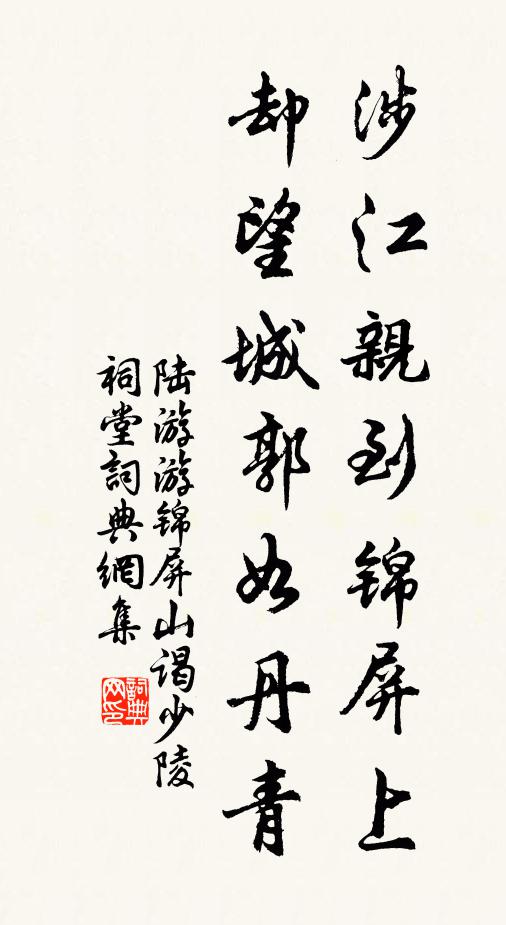 涉江親到錦屏上
却望城郭如丹青
陆游游锦屏山谒少陵
祠堂詞典網集
詞典网印